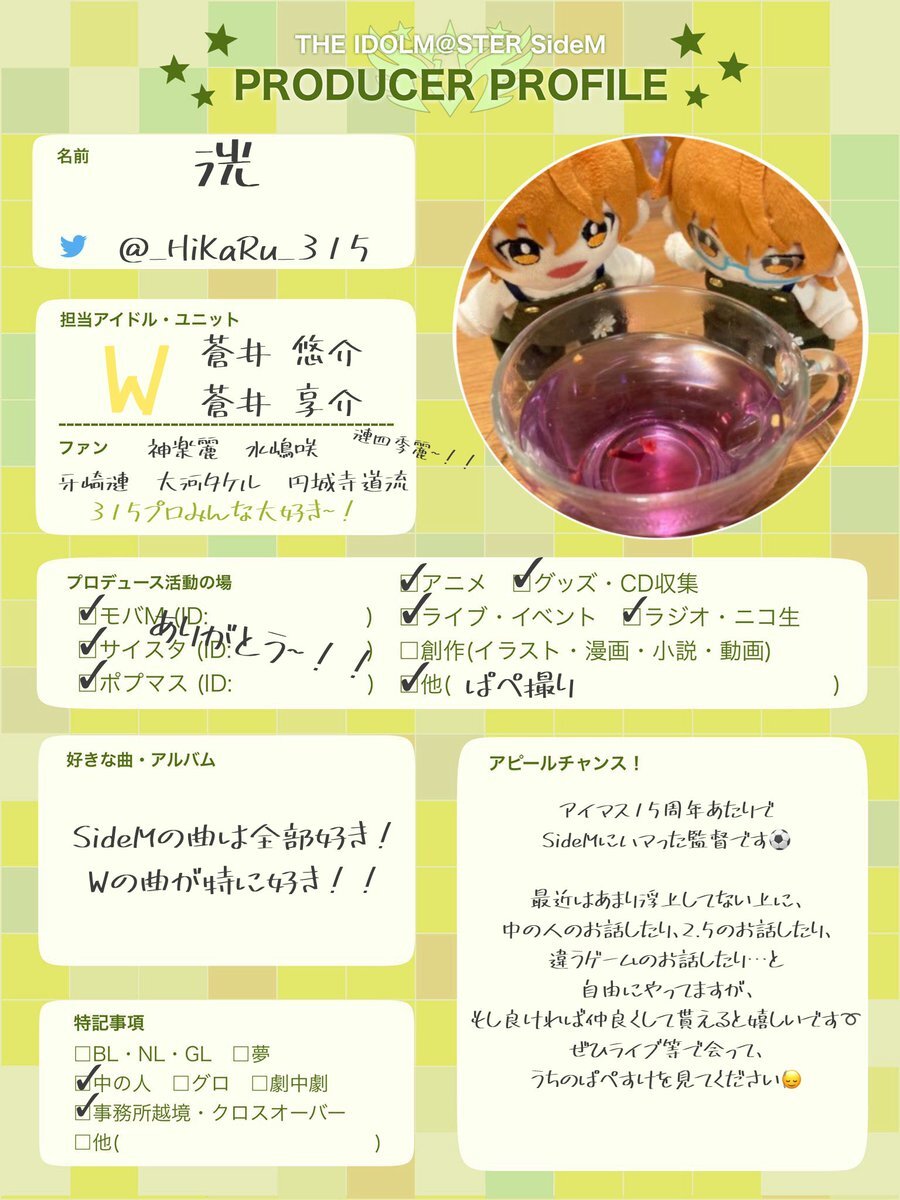 THE IDOLM@STER SideM
PRODUCER PROFILE
名前
洸
@_HiKaRu_315
担当アイドル・ユニット
W
蒼井 悠介
蒼井 享介
ファン 神楽麗 水嶋咲 漣四季麗~!!
牙崎漣 大河タケル 円城寺道流
315プロみんな大好き~!
プロデュース活動の場
☑モバM (ID: )
☑サイスタ (ID: )
☑ポプマス (ID: )
ありがとう~!!
☑アニメ ☑グッズ・CD収集
☑ライブ・イベント ☑ラジオ・ニコ生
□創作(イラスト・漫画・小説・動画)
☑他( ぱぺ撮り )
好きな曲・アルバム
SideMの曲は全部好き!
Wの曲が特に好き!!
特記事項
□BL・NL・GL □夢
☑中の人 □グロ □劇中劇
☑事務所越境・クロスオーバー
□他( )
アピールチャンス!
アイマス15周年あたりで
SideMにハマった監督です⚽
最近はあまり浮上してない上に、
中の人のお話したり、2.5のお話したり、
違うゲームのお話したり…と
自由にやってますが、
もし良ければ仲良くして貰えると嬉しいです
ぜひライブ等で会って、
うちのぱぺすけを見てください😌